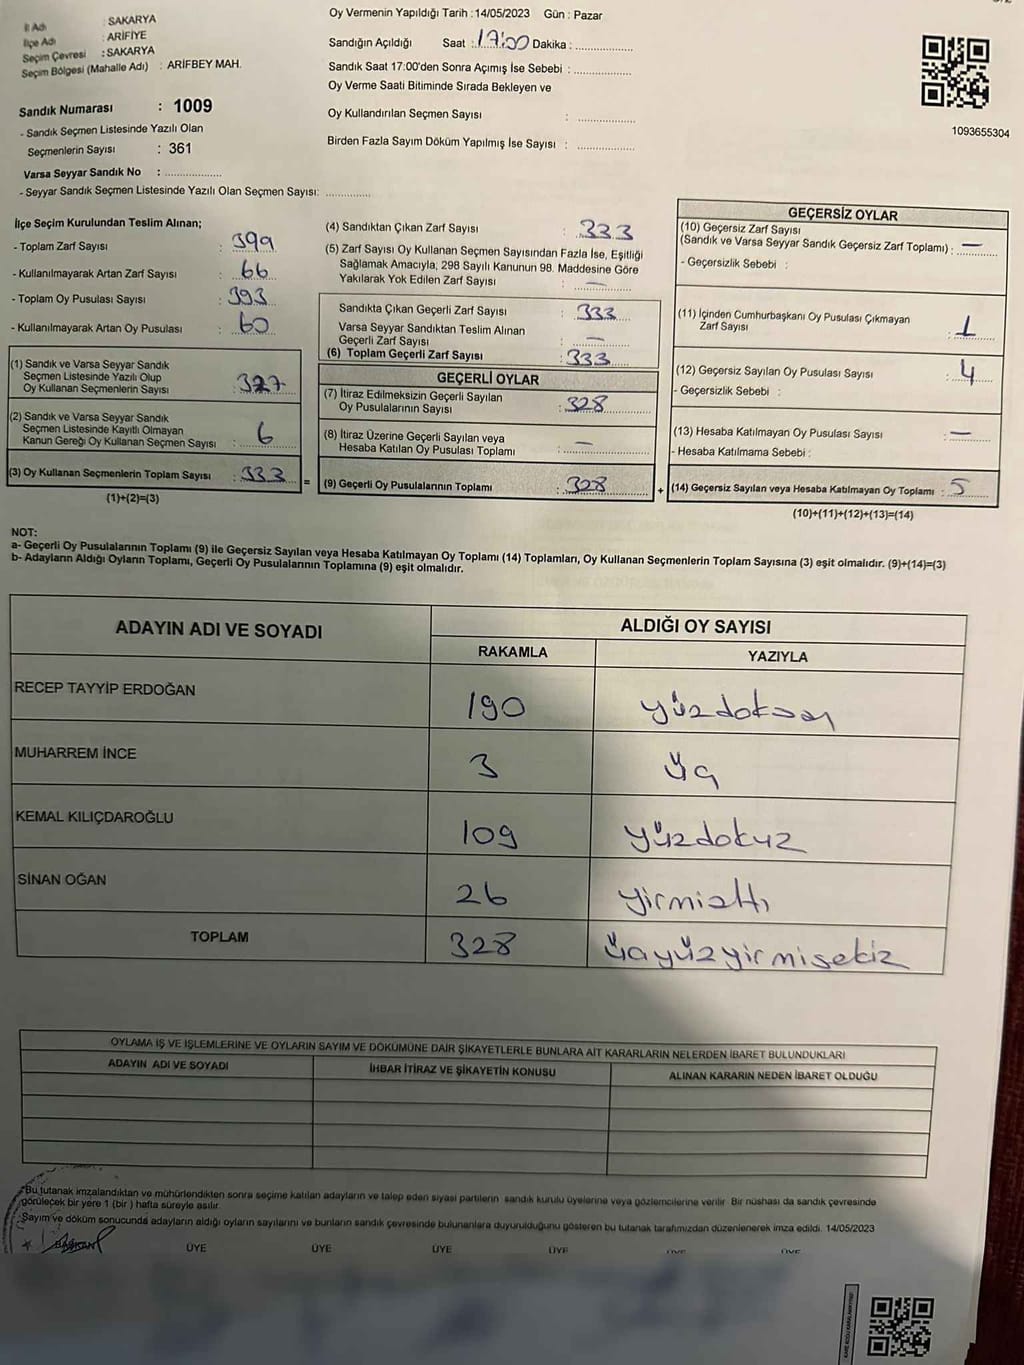 İl Adı : SAKARYA
İlçe Adı : ARİFİYE
Seçim Çevresi : SAKARYA
Seçim Bölgesi (Mahalle Adı) : ARİFBEY MAH.
Sandık Numarası : 1009
- Sandık Seçmen Listesinde Yazılı Olan
Seçmenlerin Sayısı : 361
Varsa Seyyar Sandık No : ..................
- Seyyar Sandık Seçmen Listesinde Yazılı Olan Seçmen Sayısı: ..............
Oy Vermenin Yapıldığı Tarih : 14/05/2023 Gün : Pazar
Sandığın Açıldığı Saat : 17:00 Dakika : ..................
Sandık Saat 17:00'den Sonra Açımış İse Sebebi : ..................
Oy Verme Saati Bitiminde Sırada Bekleyen ve
Oy Kullandırılan Seçmen Sayısı : ..................
Birden Fazla Sayım Döküm Yapılmış İse Sayısı : ..................
1093655304
İlçe Seçim Kurulundan Teslim Alınan;
- Toplam Zarf Sayısı : 399
- Kullanılmayarak Artan Zarf Sayısı : 66
- Toplam Oy Pusulası Sayısı : 393
- Kullanılmayarak Artan Oy Pusulası : 60
(1) Sandık ve Varsa Seyyar Sandık
Seçmen Listesinde Yazılı Olup
Oy Kullanan Seçmenlerin Sayısı : 327
(2) Sandık ve Varsa Seyyar Sandık
Seçmen Listesinde Kayıtlı Olmayan
Kanun Gereği Oy Kullanan Seçmen Sayısı : 6
(3) Oy Kullanan Seçmenlerin Toplam Sayısı : 333
(1)+(2)=(3)
(4) Sandıktan Çıkan Zarf Sayısı : 333
(5) Zarf Sayısı Oy Kullanan Seçmen Sayısından Fazla İse, Eşitliği
Sağlamak Amacıyla, 298 Sayılı Kanunun 98. Maddesine Göre
Yakılarak Yok Edilen Zarf Sayısı : —
Sandıkta Çıkan Geçerli Zarf Sayısı : 333
Varsa Seyyar Sandıktan Teslim Alınan
Geçerli Zarf Sayısı : —
(6) Toplam Geçerli Zarf Sayısı : 333
GEÇERLİ OYLAR
(7) İtiraz Edilmeksizin Geçerli Sayılan
Oy Pusulalarının Sayısı : 328
(8) İtiraz Üzerine Geçerli Sayılan veya
Hesaba Katılan Oy Pusulası Toplamı : —
= (9) Geçerli Oy Pusulalarının Toplamı : 328
GEÇERSİZ OYLAR
(10) Geçersiz Zarf Sayısı
(Sandık ve Varsa Seyyar Sandık Geçersiz Zarf Toplamı) : —
- Geçersizlik Sebebi :
(11) İçinden Cumhurbaşkanı Oy Pusulası Çıkmayan
Zarf Sayısı : 1
(12) Geçersiz Sayılan Oy Pusulası Sayısı : 4
- Geçersizlik Sebebi :
(13) Hesaba Katılmayan Oy Pusulası Sayısı : —
- Hesaba Katılmama Sebebi :
+ (14) Geçersiz Sayılan veya Hesaba Katılmayan Oy Toplamı : 5
(10)+(11)+(12)+(13)=(14)
NOT:
a- Geçerli Oy Pusulalarının Toplamı (9) ile Geçersiz Sayılan veya Hesaba Katılmayan Oy Toplamı (14) Toplamları, Oy Kullanan Seçmenlerin Toplam Sayısına (3) eşit olmalıdır. (9)+(14)=(3)
b- Adayların Aldığı Oyların Toplamı, Geçerli Oy Pusulalarının Toplamına (9) eşit olmalıdır.
ADAYIN ADI VE SOYADI ALDIĞI OY SAYISI
RAKAMLA YAZIYLA
RECEP TAYYİP ERDOĞAN 190 yüzdoksan
MUHARREM İNCE 3 üç
KEMAL KILIÇDAROĞLU 109 yüzdokuz
SİNAN OĞAN 26 yirmialtı
TOPLAM 328 üçyüzyirmisekiz
OYLAMA İŞ VE İŞLEMLERİNE VE OYLARIN SAYIM VE DÖKÜMÜNE DAİR ŞİKAYETLERLE BUNLARA AİT KARARLARIN NELERDEN İBARET BULUNDUKLARI
ADAYIN ADI VE SOYADI İHBAR İTİRAZ VE ŞİKAYETİN KONUSU ALINAN KARARIN NEDEN İBARET OLDUĞU
Bu tutanak imzalandıktan ve mühürlendikten sonra seçime katılan adayların ve talep eden siyasi partilerin sandık kurulu üyelerine veya gözlemcilerine verilir. Bir nüshası da sandık çevresinde
görülecek bir yere 1 (bir) hafta süreyle asılır.
Sayım ve döküm sonucunda adayların aldığı oyların sayılarını ve bunların sandık çevresinde bulunanlara duyurulduğunu gösteren bu tutanak tarafımızdan düzenlenerek imza edildi. 14/05/2023
BAŞKAN ÜYE ÜYE ÜYE ÜYE ÜYE ÜYE